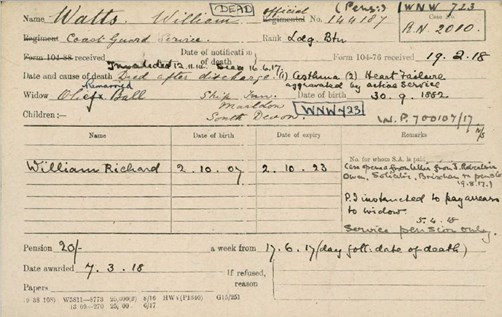 DEAD (Pens:) WNW 723
Name Watts, William Official Regimental No. 144187 Case No. R.N 2010.
Regiment Coast Guard Service. Rank Ldg. Btn
Form 104-88 received Date of notification of death Form 104-76 received 19.2.18
Invalided 12.11.10. Died 16.6.17.
Date and cause of death Died after discharge (1) Asthma (2) Heart Failure
aggravated by active service
Widow Remarried Ball Ship Inn, Date of birth 30.9.1882
Marldon
Children:— South Devon. WNW 723 W.P. 700107/17
Name Date of birth Date of expiry Remarks
No. for whose R.A. is paid
William Richard 2.10.07 2.10.23 Case opened from letter from
Solicitor, Brixham
P.I instructed to pay arrears
to widow.
5.4.18
Service pension only.
Pension 20/- a week from 17.6.17 (day foll: date of death)
Date awarded 7.3.18 If refused, reason
Papers
W5811—4773 25,000 8/16 HWV(P1240) G15/251
25,000 6/17